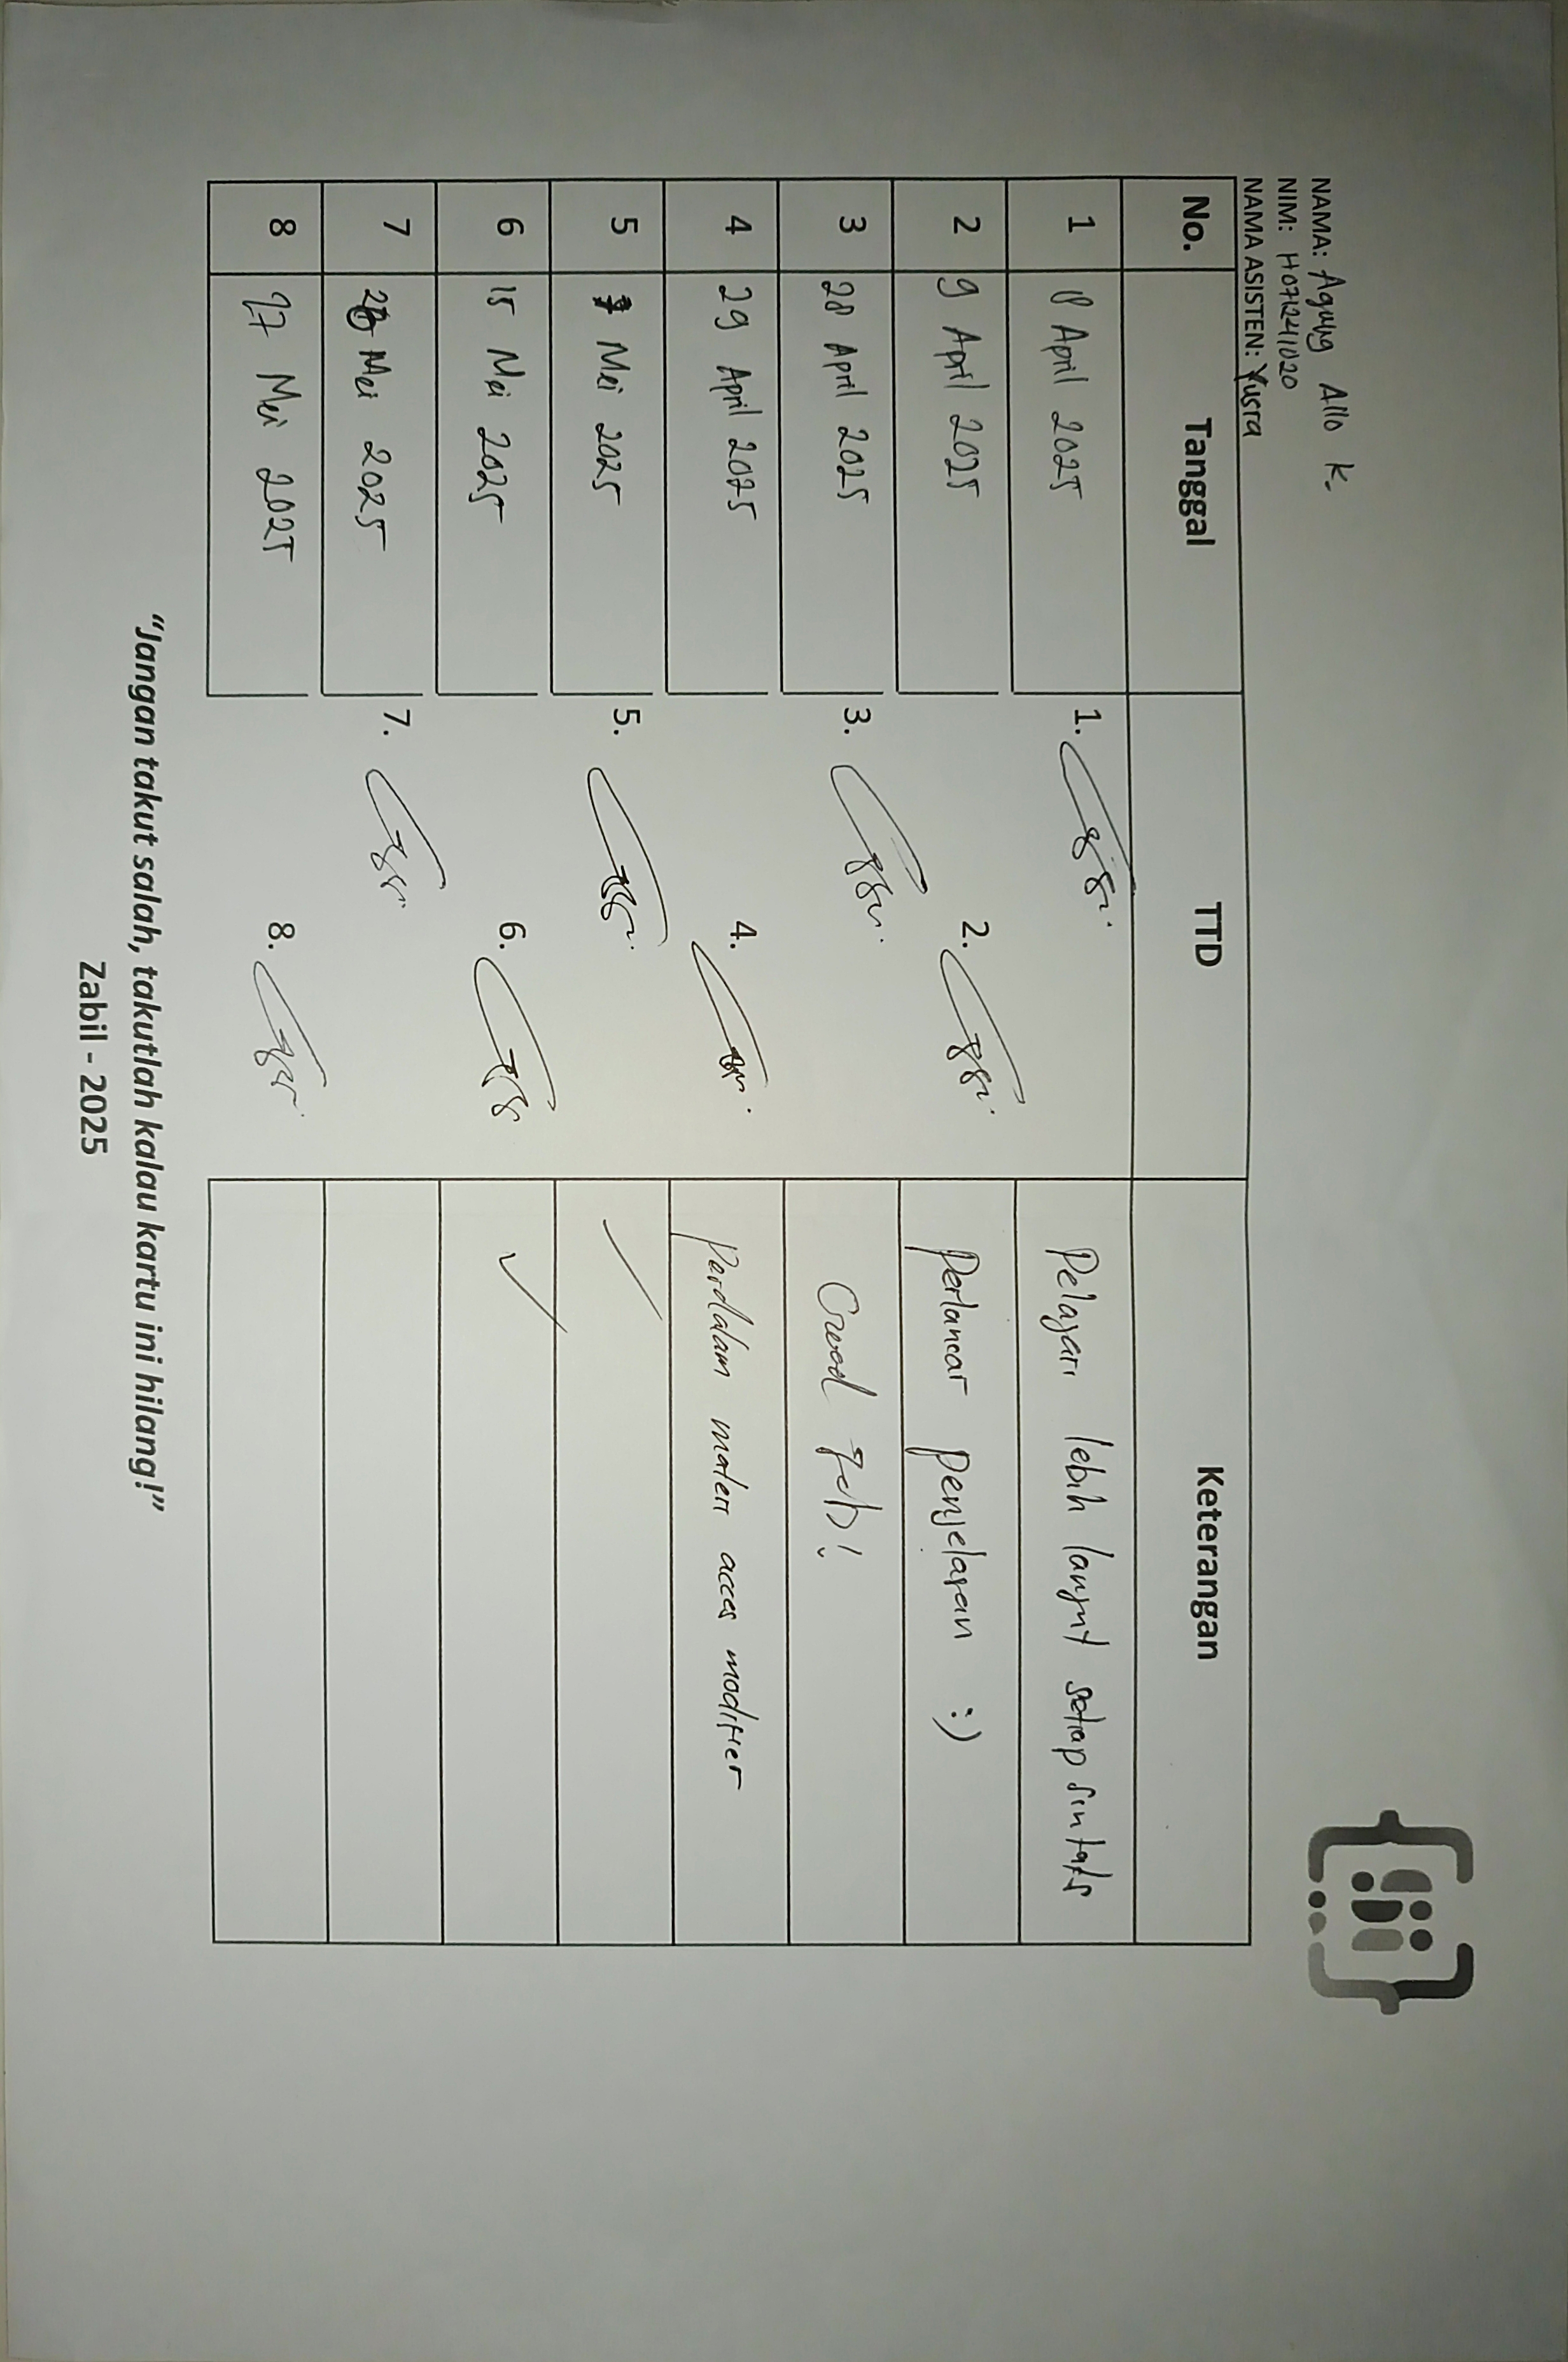 NAMA: Agung Allo K.
NIM: H071241020
NAMA ASISTEN: Yusra
No. Tanggal TTD Keterangan
1 8 April 2025 1. Pelajari lebih lanjut setiap sintaks
2 9 April 2025 2. Perlancar penjelasan :)
3 28 April 2025 3. Good job!
4 29 April 2025 4. Perdalam materi acces modifier
5 7 Mei 2025 5.
6 15 Mei 2025 6.
7 Mei 2025 7.
8 27 Mei 2025 8.
“Jangan takut salah, takutlah kalau kartu ini hilang!”
Zabil - 2025